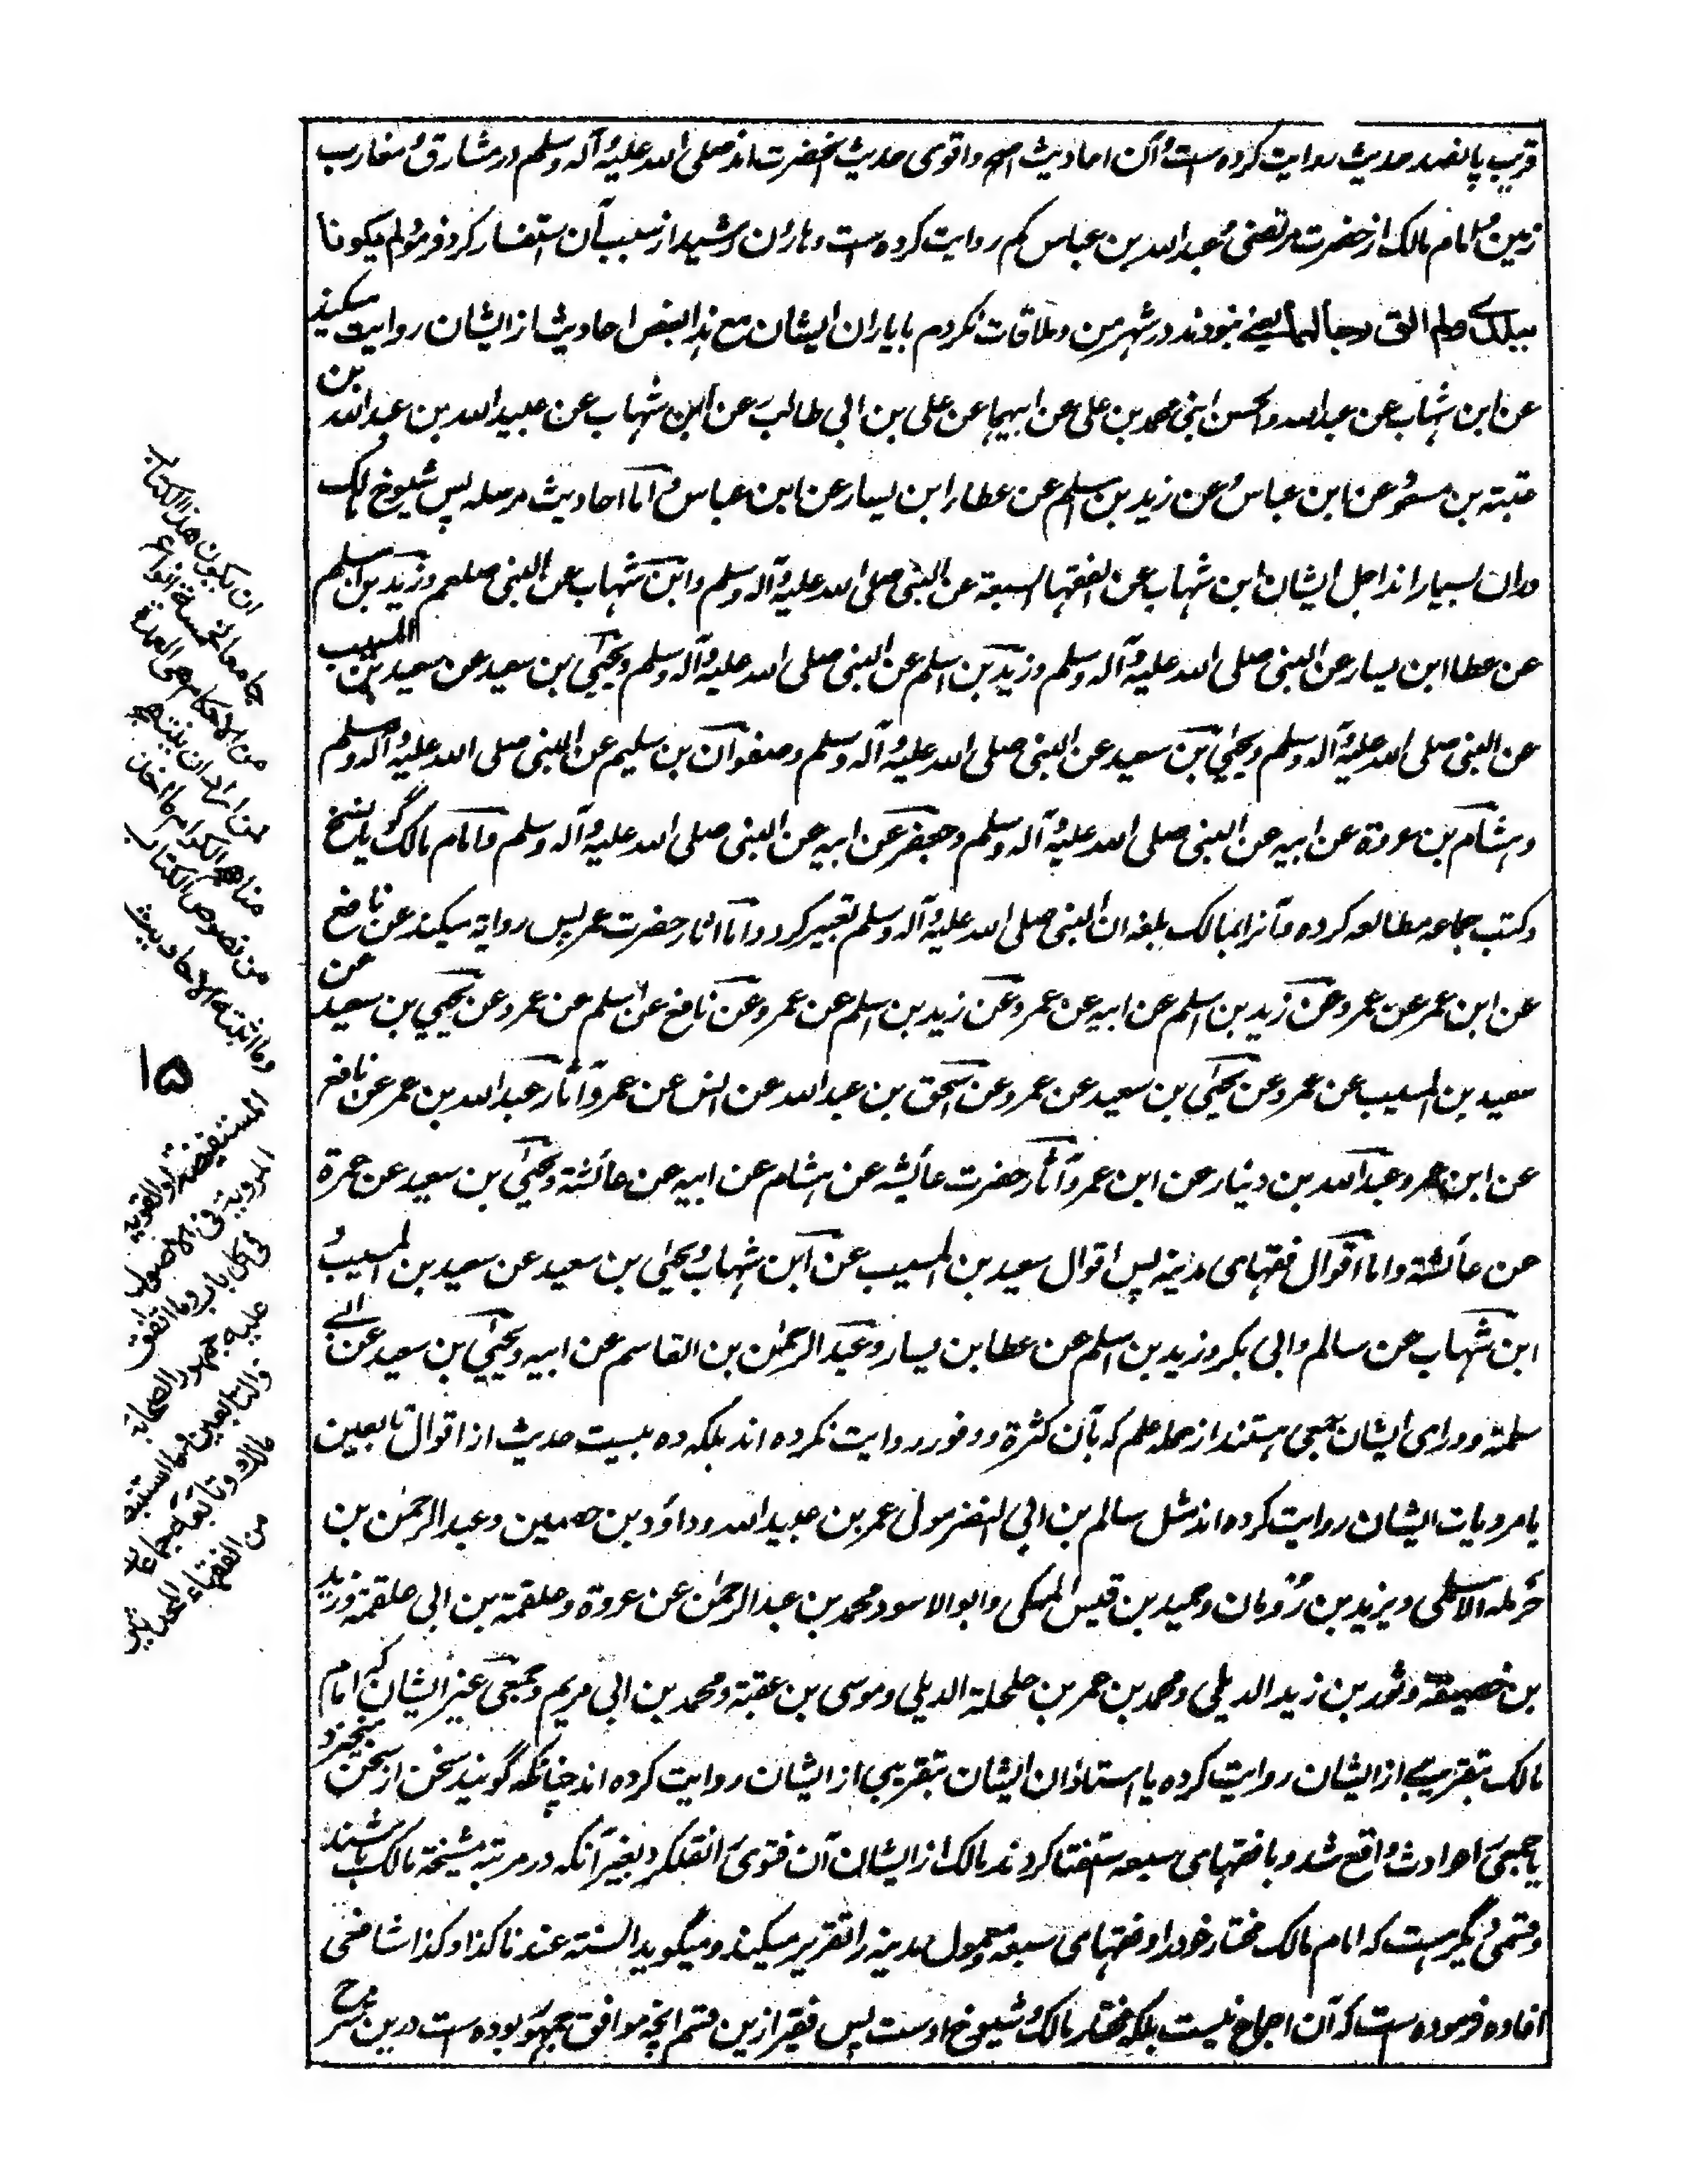 قریب پانصد حدیث روایت کرده است و آن احادیث اصح و اقوی حدیث آنحضرت اند صلی الله علیه و آله وسلم در مشارق و مغارب
زمین و امام مالک از حضرت مرتضی و عبدالله بن عباس کم روایت کرده است و هارون رشید از سبب آن استفسار کرد فرمود لم یکونا
ببلدی ولم الق رجالهما یعنی نبودند در شهر من و ملاقات نکردم با یاران ایشان مع هذا بعض احادیث از ایشان روایت میکند
عن ابن شهاب عن عبدالله والحسن ابنی محمد بن علی عن ابیهما عن علی بن ابی طالب عن ابن شهاب عن عبیدالله بن عبدالله بن
عتبة بن مسعود عن ابن عباس و عن زید بن اسلم عن عطاء ابن یسار عن ابن عباس و اما احادیث مرسله پس شیوخ مالک
دران بسیار اند اجل ایشان ابن شهاب عن الفقهاء السبعة عن النبی صلی الله علیه و آله وسلم و ابن شهاب عن النبی صلعم و زید بن اسلم
عن عطا ابن یسار عن النبی صلی الله علیه و آله وسلم و زید بن اسلم عن النبی صلی الله علیه و آله وسلم و یحیی بن سعید عن سعید بن المسیب
عن النبی صلی الله علیه و آله وسلم و یحیی بن سعید عن النبی صلی الله علیه و آله وسلم و صفوان بن سلیم عن النبی صلی الله علیه و آله وسلم
و هشام بن عروة عن ابیه عن النبی صلی الله علیه و آله وسلم و جعفر عن ابیه عن النبی صلی الله علیه و آله وسلم و امام مالک گاهی نسخ
و کتب جماعه مطالعه کرده و آنرا بمالک بلغه ان النبی صلی الله علیه و آله وسلم تعبیر کرد و اما آثار حضرت عمر پس روایة میکند عن نافع
عن ابن عمر عن عمر و عن زید بن اسلم عن ابیه عن عمر و عن زید بن اسلم عن عمر و عن نافع عن اسلم عن عمر و عن یحیی بن سعید عن
سعید بن المسیب عن عمر و عن یحیی بن سعید عن عمر و عن اسحق بن عبدالله عن انس عن عمر و آثار عبدالله بن عمر عن نافع
عن ابن عمر و عبدالله بن دینار عن ابن عمر و آثار حضرت عائشه عن هشام عن ابیه عن عائشة و یحیی بن سعید عن عمرة
عن عائشة و اما اقوال فقهای مدینه پس اقوال سعید بن المسیب عن ابن شهاب و یحیی بن سعید عن سعید بن المسیب و
ابن شهاب عن سالم و ابی بکر و زید بن اسلم عن عطا بن یسار و عبد الرحمن بن القاسم عن ابیه و یحیی بن سعید عن ابی
سلمة و ورای ایشان جمعی هستند از حمله علم که بآن کثرة و وفور روایت نکرده اند بلکه ده بیست حدیث از اقوال تابعین
یا مرویات ایشان روایت کرده اند مثل سالم بن ابی النضر مولی عمر بن عبیدالله و داود بن حصین و عبد الرحمن بن
حرمله الاسلمی و یزید بن رومان و حمید بن قیس المکی و ابو الاسود محمد بن عبد الرحمن عن عروة و علقمة بن ابی علقمة و یزید
بن خصیفة و ثور بن زید الدیلی و محمد بن عمر بن حلحلة الدیلی و موسی بن عقبة و محمد بن ابی مریم و جمعی غیر ایشان که امام
مالک بتقریبی از ایشان روایت کرده یا استاذان ایشان بتقریبی از ایشان روایت کرده اند چنانکه گویند سخن از سخن میخیزد
یا جمعی را حوادث واقع شد و با فقهای سبعه استفتا کردند مالک از ایشان آن فتوی را نقل کرد بغیر آنکه در مرتبه مشیخة مالک باشند
و قسمی دیگر هست که امام مالک مختار خود را و فقهای سبعه و معمول مدینه را تقریر میکند و میگوید السنة عندنا کذا و کذا شافعی
افاده فرموده است که آن اجماع نیست بلکه مختار مالک و شیوخ اوست پس فقیر ازین قسم آنچه موافق جمهور بوده است درین شرح
ان یکون هذا الکتاب
جامعا لخمسة انواع
من الاحکام هی العمدة
لمن اراد ان ینتهج
مناهج الکرام ما اخذ
من نصوص الکتاب
وما اثبته الاحادیث
۱۵
المستفیضة او القویة
المرویة فی الاصول
فی کل باب وما اتفق
علیه جمهور الصحابة
والتابعین وما استنبطه
مالک وتابعه جماعات
من الفقهاء المحدثین